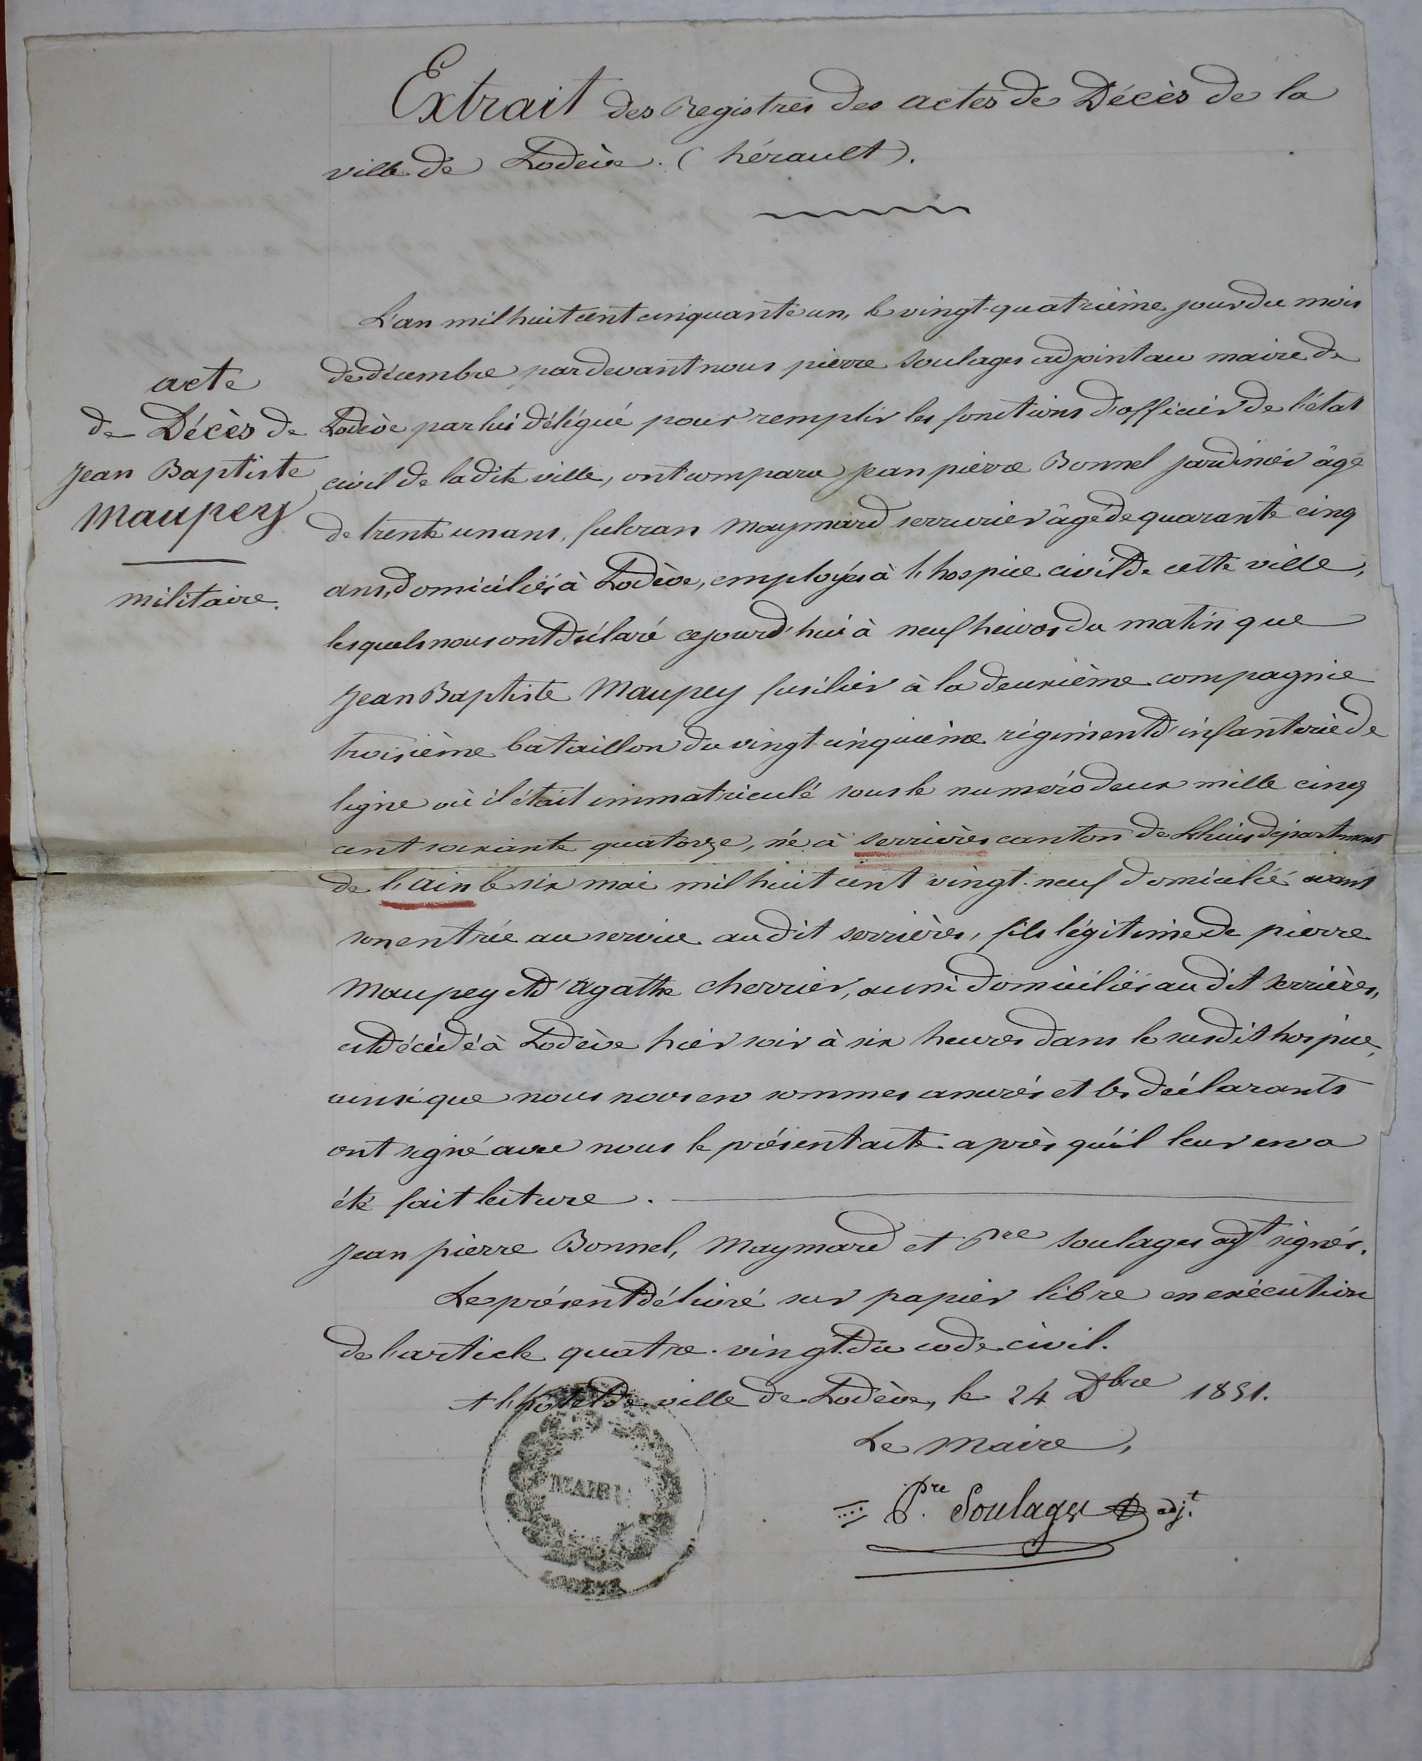 Extrait des Registres des actes de Décès de la
ville de Lodève. (hérault).
acte
de Décès de
Jean Baptiste
Maupey
militaire.
L'an mil huit cent cinquante un, le vingt-quatrième jour du mois
de décembre par devant nous pierre Soulages adjoint au maire de
Lodève par lui délégué pour remplir les fonctions d'officier de l'état
civil de la dite ville, ont comparu Jean pierre Bonnel jardinier âgé
de trente un ans, fulcran Maymard serrurier âgé de quarante cinq
ans, domiciliés à Lodève, employés à l'hospice civil de cette ville,
lesquels nous ont déclaré ce jourd'hui à neuf heures du matin que
Jean Baptiste Maupey fusilier à la deuxième compagnie
troisième bataillon du vingt cinquième régiment d'infanterie de
ligne où il était immatriculé sous le numéro deux mille cinq
cent soixante quatorze, né à serrières canton de Lhuis département
de l'ain le six mai mil huit cent vingt-neuf domicilié avant
son entrée au service au dit serrières, fils légitime de pierre
Maupey et d'agathe Cherrier, aussi domiciliés au dit serrières,
est décédé à Lodève hier soir à six heures dans le susdit hospice,
ainsi que nous nous en sommes assurés et les déclarants
ont signé avec nous le présent acte après qu'il leur en a
été fait lecture.
Jean pierre Bonnel, Maymard et Pre Soulages adjt signés.
Le présent délivré sur papier libre en exécution
de l'article quatre-vingt du code civil.
A l'hôtel de ville de Lodève, le 24 Dbre 1851.
Le Maire,
Pre. Soulages adjt.
MAIRIE
LODÈVE